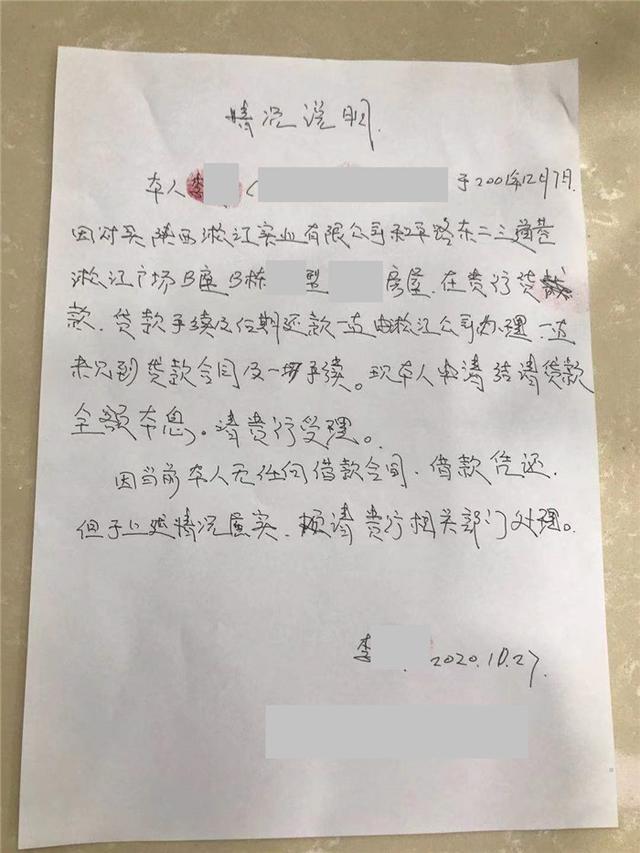 情况说明
本人李 ( 于2001年12月7日
因对买陕西淞江实业有限公司和平路东二三道巷
淞江广场B座B栋 型 房屋,在贵行贷
款,贷款手续及任期还款一直由淞江公司办理,一直
未见到贷款合同及一切手续。现本人申请结请贷款
全额本息。请贵行受理。
因当前本人无任何借款合同,借款凭还,
但于上述情况属实,烦请贵行相关部门处理。
李 2020.10.27